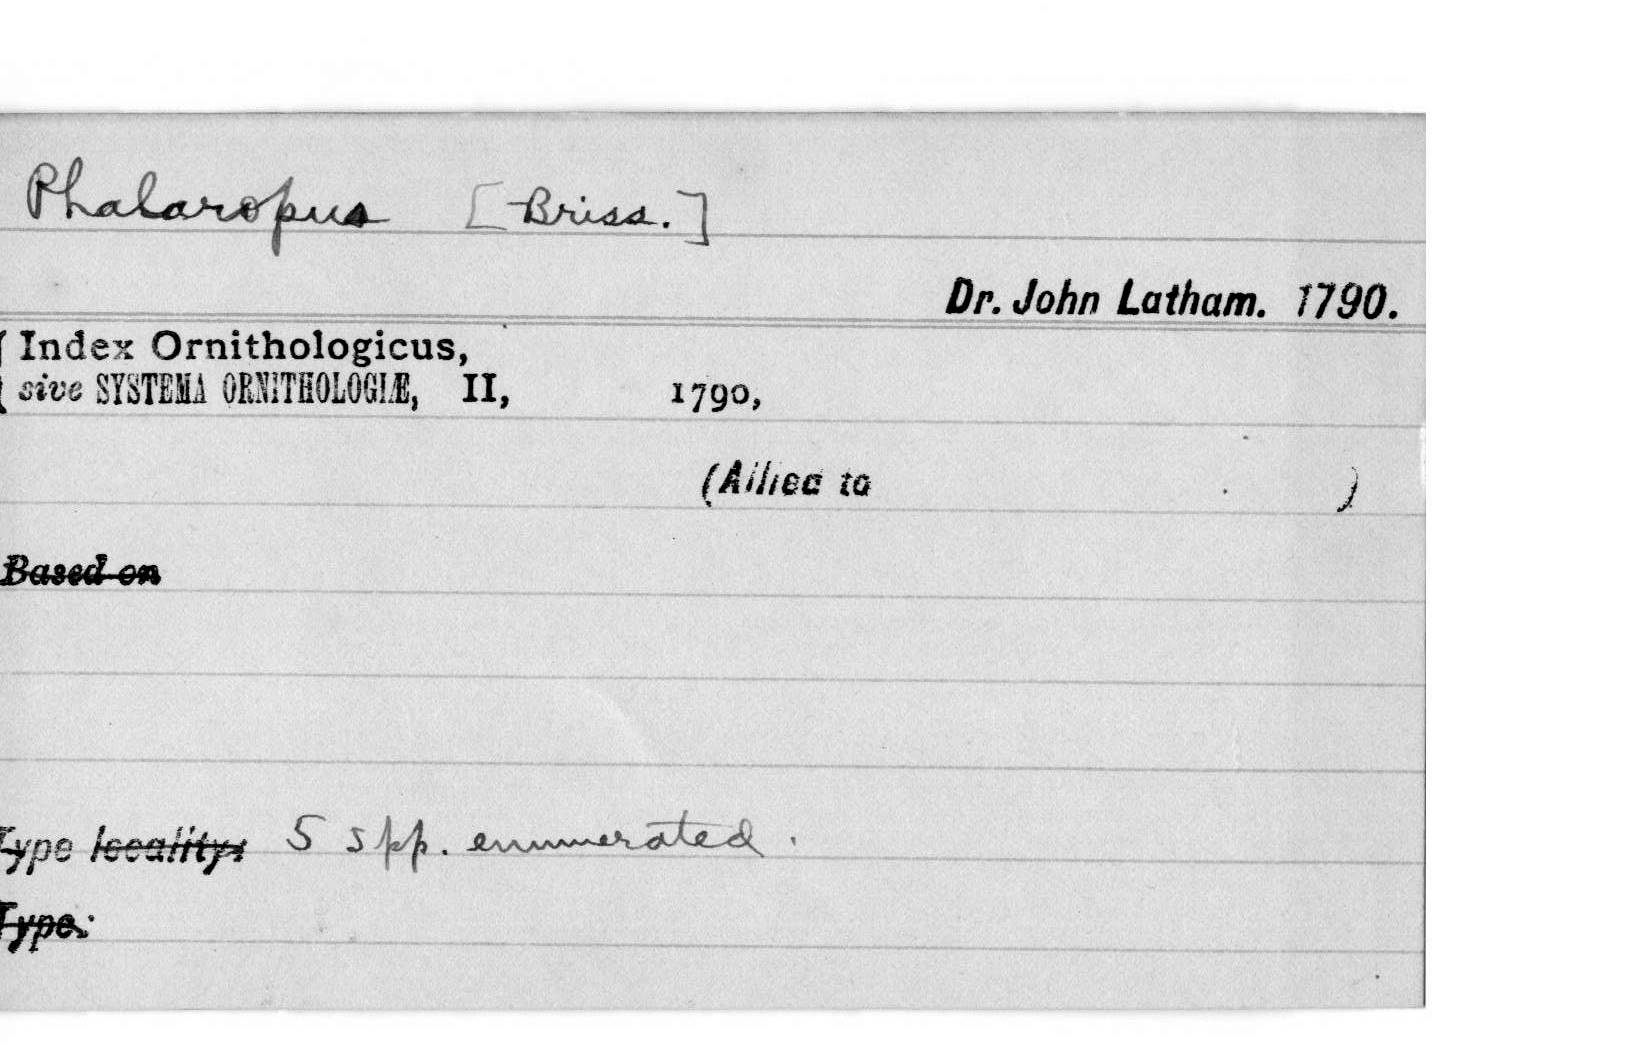 Phalaropus [Briss.]
Dr. John Latham. 1790.
Index Ornithologicus,
sive SYSTEMA ORNITHOLOGIÆ, II, 1790,
(Allied to )
Based on
Type locality: 5 spp. enumerated.
Type: